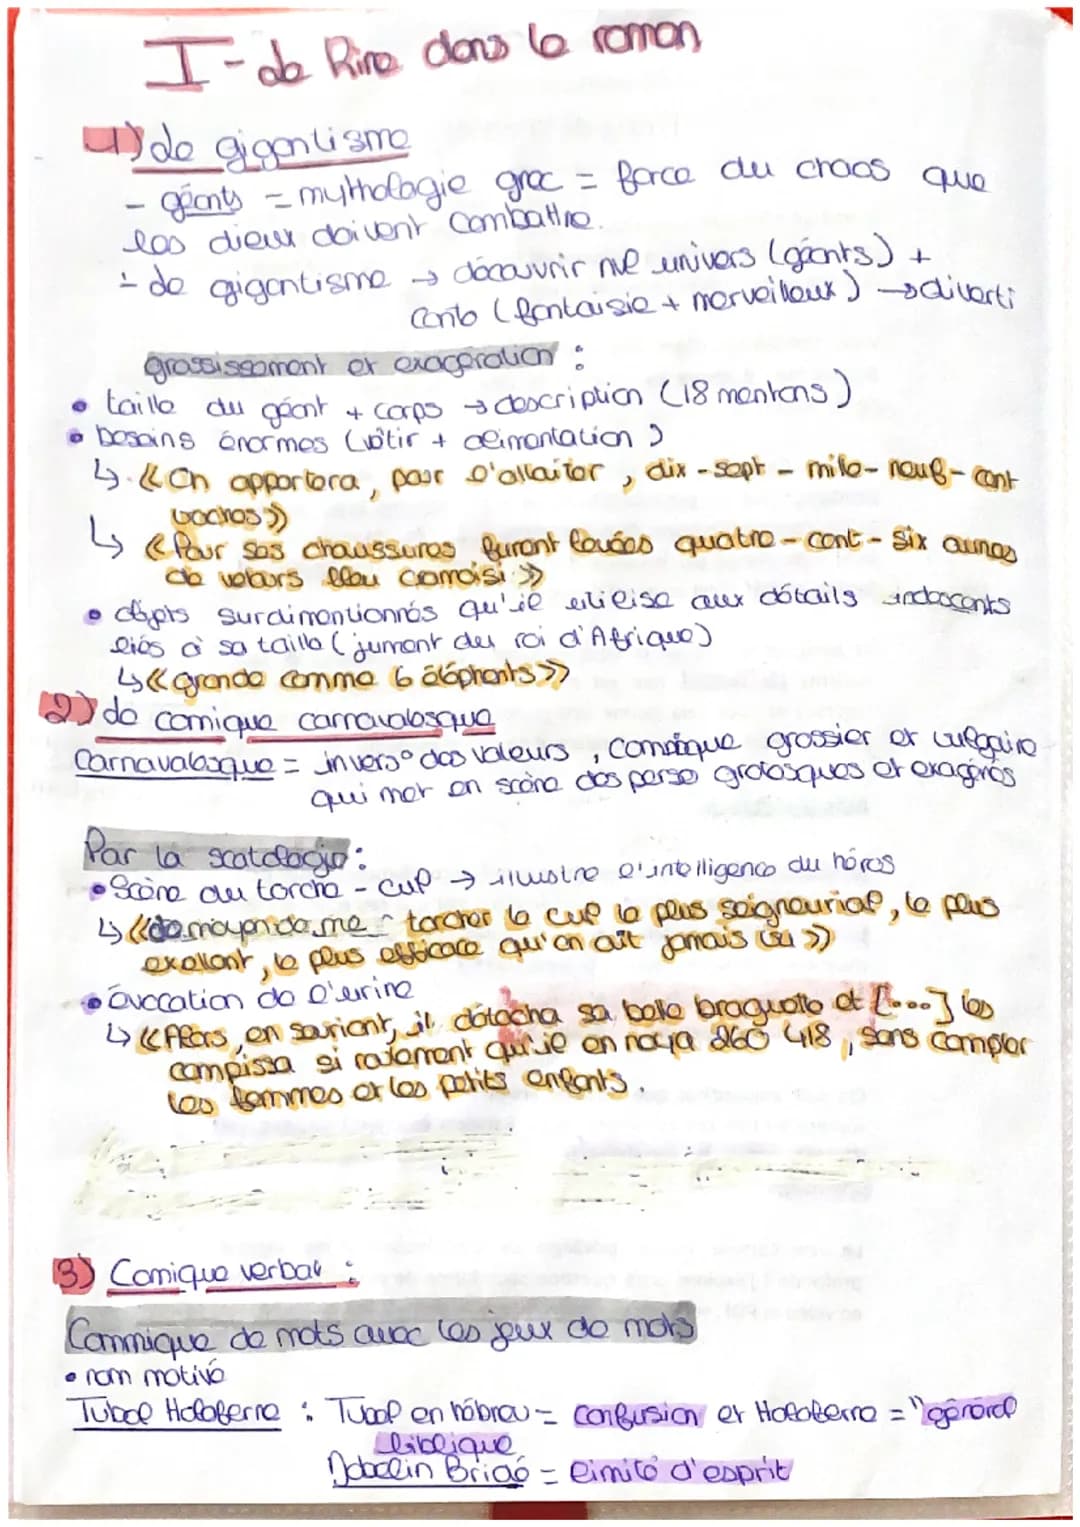 I - Le Rire dans le roman
1) Le gigantisme
- géants = mythologie grec = force du chaos que
les dieux doivent combattre.
- Le gigantisme → découvrir nvl univers (géants) +
conte (fantaisie + merveilleux) → diverti
grossissement et exagération :
• taille du géant + corps → description (18 mentons)
• besoins énormes (vêtir + alimentation)
↳ «On apportera, pour l'allaiter, dix-sept-mile-neuf-cent
vaches»
↳ «Pour ses chaussures furent loués quatre-cent-six aunes
de velours bleu cramoisi»
• objets surdimentionnés qu'il utilise aux détails indescents
liés à sa taille (jument du roi d'Afrique)
↳ «grande comme 6 éléphants»
2) Le comique carnavalesque
Carnavalesque = invers° des valeurs, comique grossier et vulgaire
qui met en scène des perso grotesques et exagérés
Par la scatologie :
• Scène du torche-cul → illustre l'intelligence du héros
↳ «Le moyen de me torcher le cul le plus seigneurial, le plus
exellent, le plus efficace qu'on ait jamais vu»
• Évocation de l'urine
↳ «Alors, en souriant, il détacha sa belle braguette et [...] les
compissa si raidement qu'il en noya 260 418, sans compter
les femmes et les petits enfants.
3) Comique verbal :
Commique de mots avec les jeux de mots
• nom motivé
Tubal Holoferne : Tubal en hébreu = confusion et Holoferne = "général
biblique
Jobelin Bridé = limité d'esprit